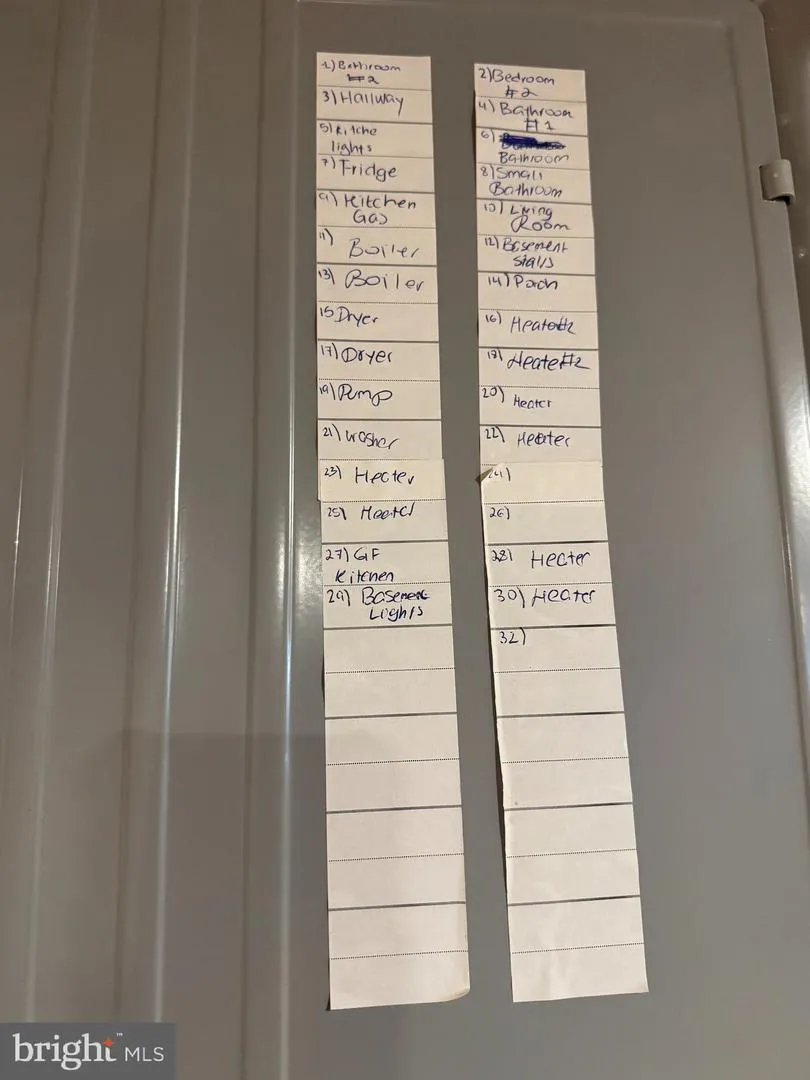 1) Bathroom
#2
3) Hallway
5) Kitche
lights
7) Fridge
9) Kitchen
Gas
11) Boiler
13) Boiler
15 Dryer
17) Dryer
19) Pump
21) Washer
23) Heater
25)
27) GF
Kitchen
29) Basement
Lights
2) Bedroom
#2
4) Bathroom
#1
6)
Bathroom
8) Small
Bathroom
10) Living
Room
12) Basement
14) Porch
16) Heater#2
18) Heate#2
20) Heater
22) Heater
24)
26)
28) Heater
30) Heater
32)
bright™ MLS